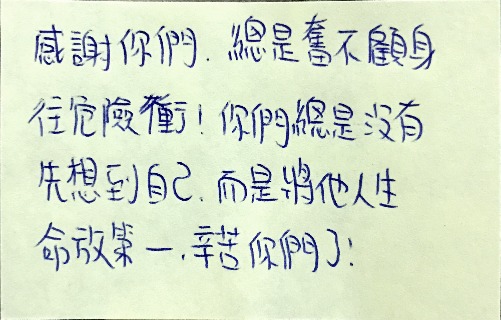 感謝你們.總是奮不顧身
往危險衝!你們總是沒有
先想到自己.而是將他人生
命放第一.辛苦你們了!